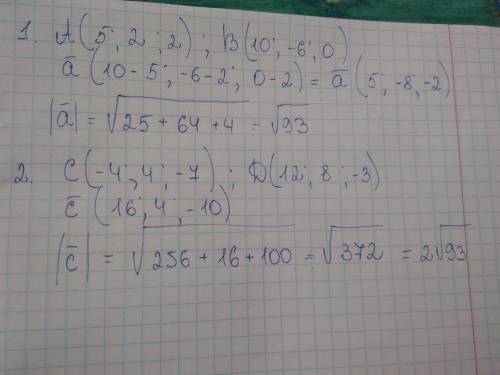 1. A(5; 2; 2); B(10; -6; 0)
ā(10-5; -6-2; 0-2) = ā(5; -8; -2)
|ā| = √25+64+4 = √93
2. C(-4; 4; -7); D(12; 8; -3)
c̄(16; 4; -10)
|c̄| = √256+16+100 = √372 = 2√93